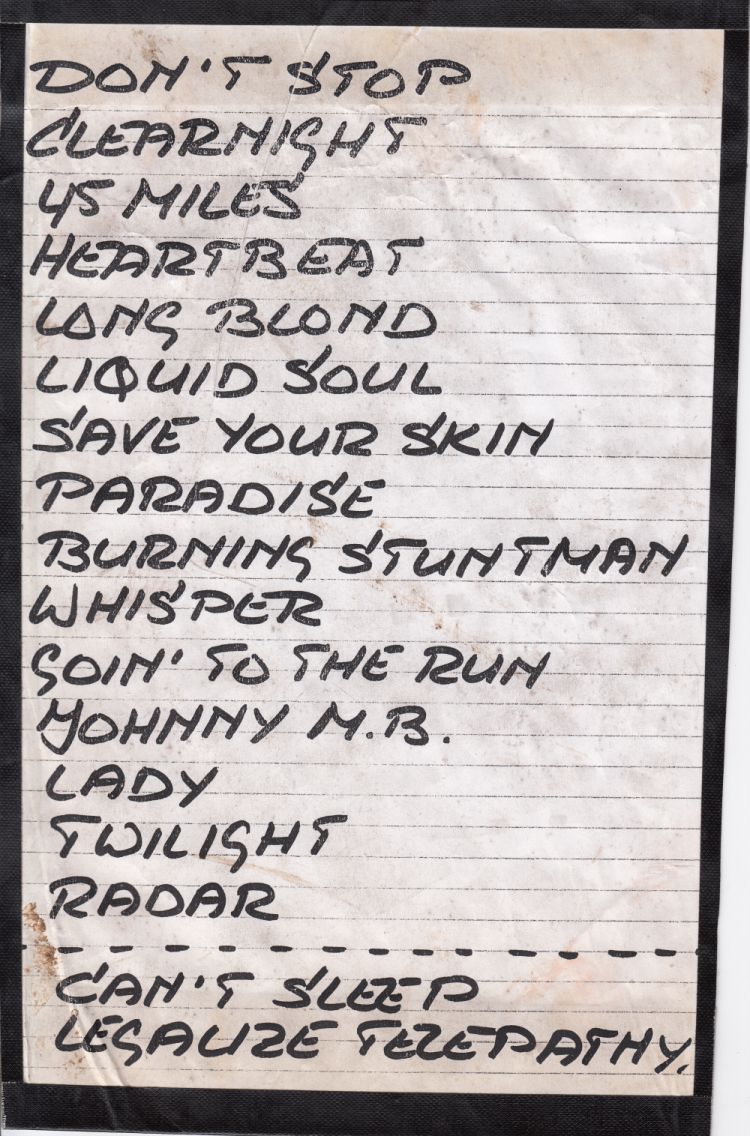 DON'T STOP
CLEARNIGHT
45 MILES
HEARTBEAT
LONG BLOND
LIQUID SOUL
SAVE YOUR SKIN
PARADISE
BURNING STUNTMAN
WHISPER
GOIN' TO THE RUN
YOHNNY M.B.
LADY
TWILIGHT
RADAR
CAN'T SLEEP
LEGALIZE TELEPATHY.